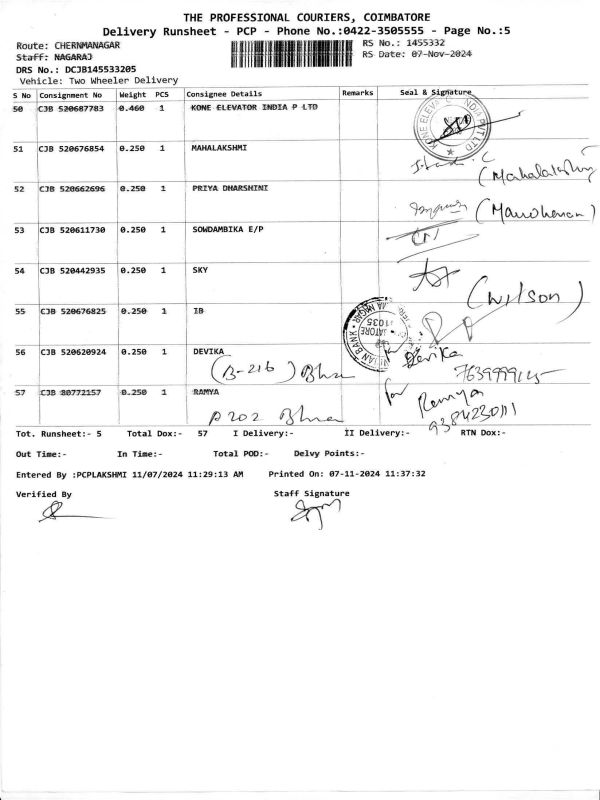 THE PROFESSIONAL COURIERS, COIMBATORE
Delivery Runsheet - PCP - Phone No.:0422-3505555 - Page No.:5
Route: CHERNMANAGAR RS No.: 1455332
Staff: NAGARAJ RS Date: 07-Nov-2024
DRS No.: DCJB145533205
Vehicle: Two Wheeler Delivery
S No Consignment No Weight PCS Consignee Details Remarks Seal & Signature
50 CJB 520687783 0.460 1 KONE ELEVATOR INDIA P LTD
KONE ELEVA INDIA PVT LTD
51 CJB 520676854 0.250 1 MAHALAKSHMI
(Mahalakshmi
52 CJB 520662696 0.250 1 PRIYA DHARSHINI
(Manoharan)
53 CJB 520611730 0.250 1 SOWDAMBIKA E/P
54 CJB 520442935 0.250 1 SKY
(Wilson)
55 CJB 520676825 0.250 1 IB
56 CJB 520620924 0.250 1 DEVIKA
for Devika
(B-216)
57 CJB 80772157 0.250 1 RAMYA
for Ramya
P202
9384230111
Tot. Runsheet:- 5 Total Dox:- 57 I Delivery:- II Delivery:- RTN Dox:-
Out Time:- In Time:- Total POD:- Delvy Points:-
Entered By :PCPLAKSHMI 11/07/2024 11:29:13 AM Printed On: 07-11-2024 11:37:32
Verified By Staff Signature